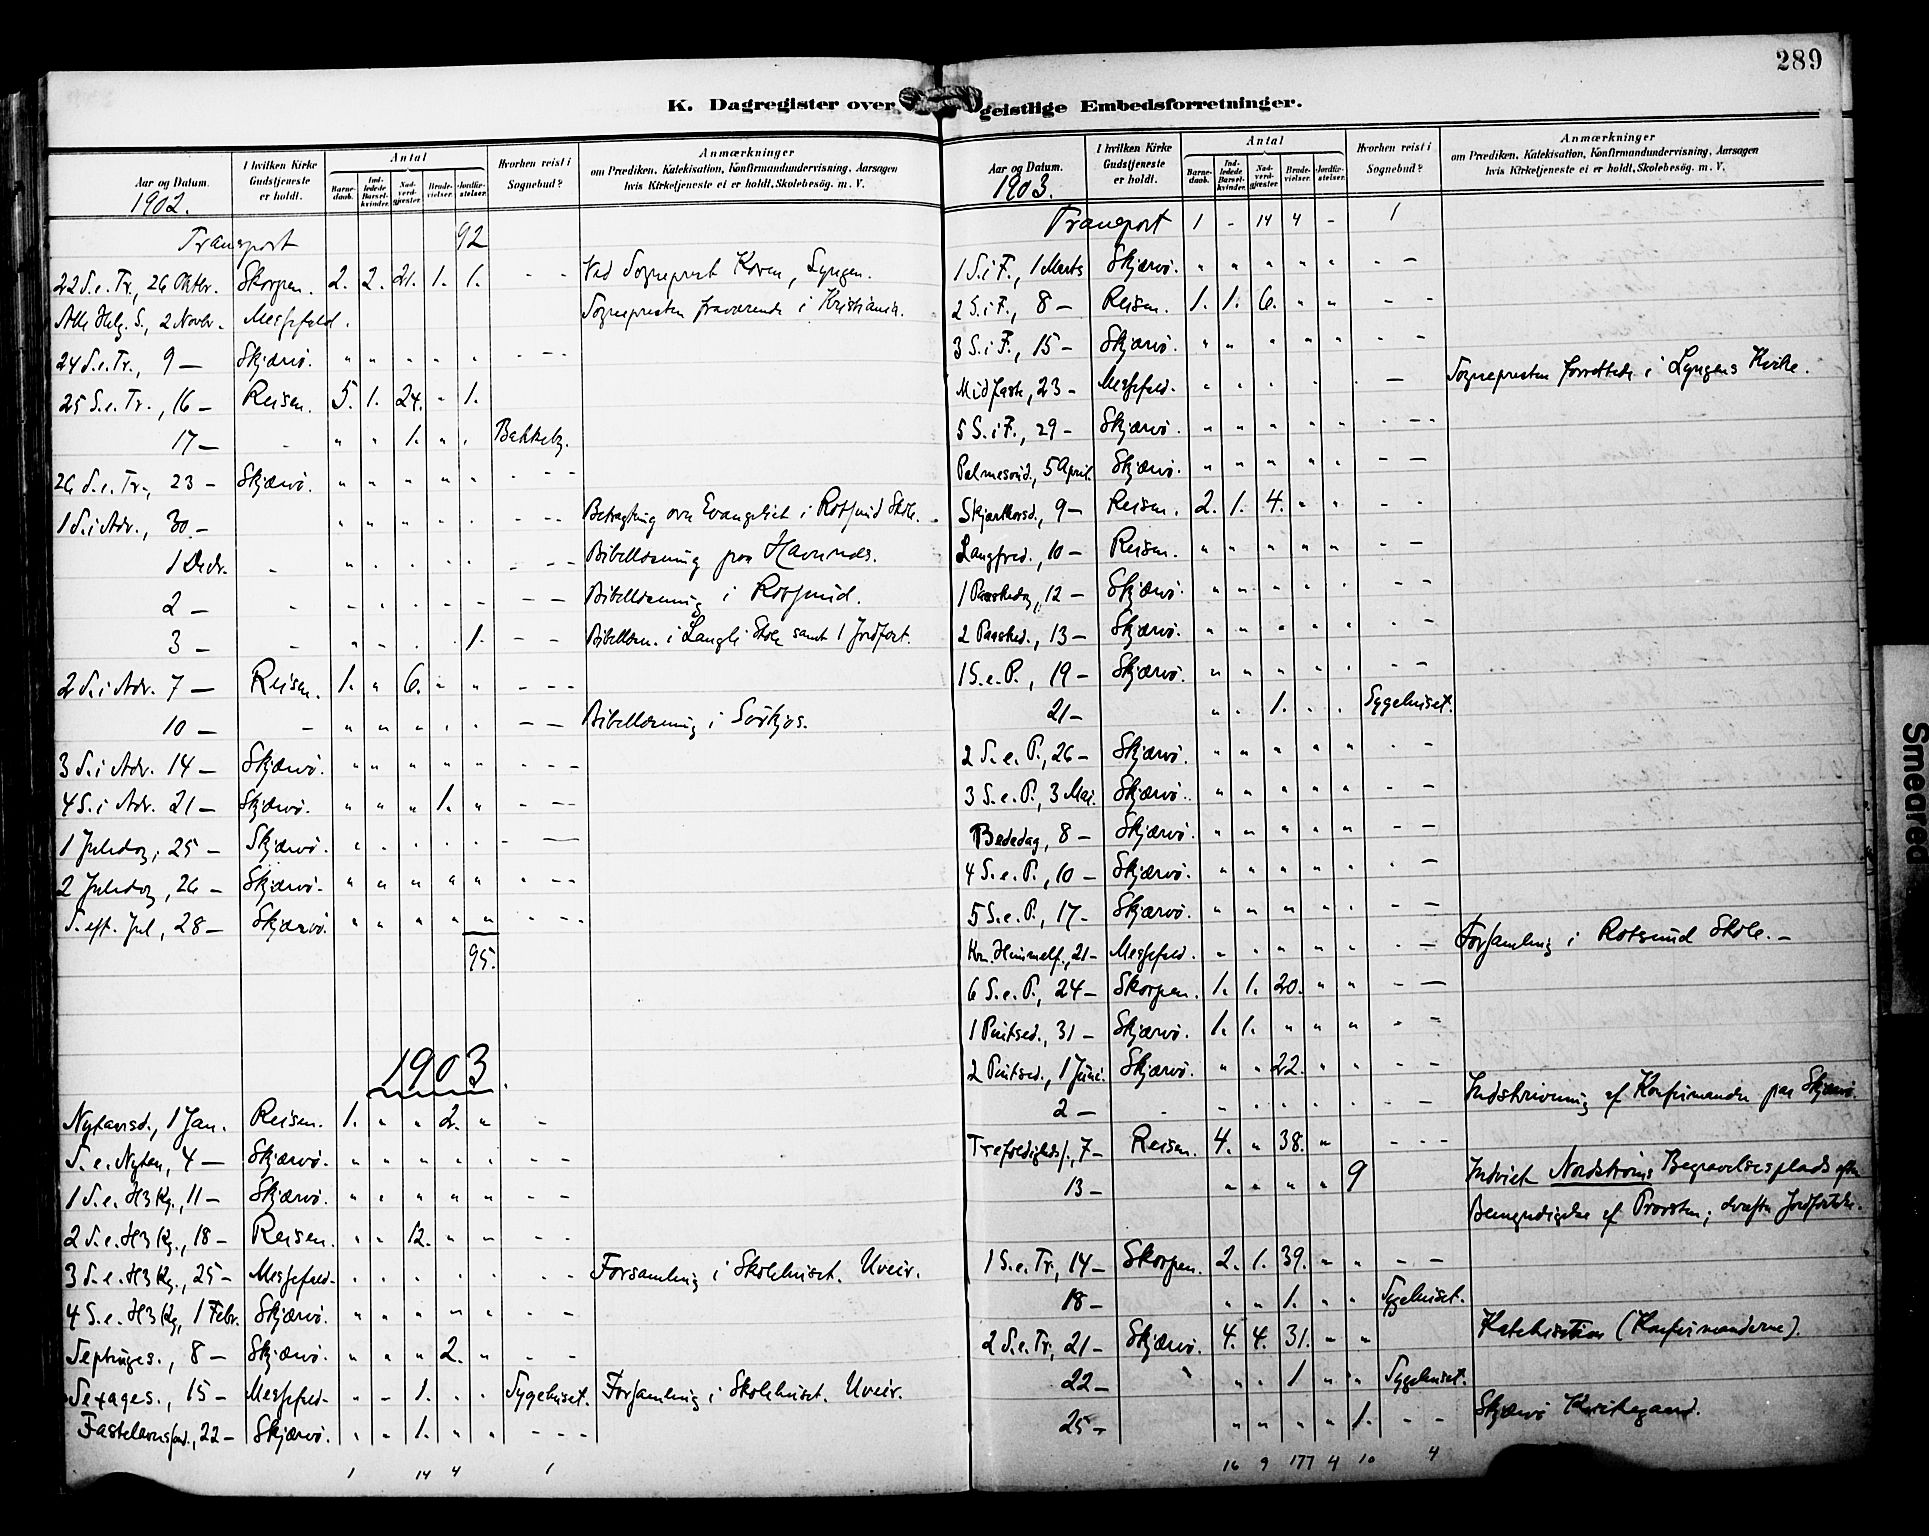 289
K. Dagregister over geistlige Embedsforretninger.
Aar og Datum. I hvilken Kirke Gudstjeneste er holdt. Antal Barnedaab. Indledede Barselkvinder. Nadverdgjæster. Brudevielser. Jordfæstelser. Hvorhen reist i Sognebud? Anmærkninger om Prædiken, Katekisation, Konfirmandundervisning, Aarsagen hvis Kirketjeneste ei er holdt, Skolebesög. m. V.
1902.
Transport 92
22 S. e. Tr., 26 Oktbr. Skorpen. 2. 2. 21. 1. 1. - - Ved Sogneprest Koren, Lyngen.
Alle Helg. S., 2 Novbr. Messefald. Sognepresten fraværende i Kristiania.
24 S. e. Tr., 9 — Skjærvö. " " " " " - - -
25 S. e. Tr., 16 — Reisen. 5. 1. 24. " 1.
17 — - " " 1. " " Bakkeby.
26 S. e. Tr., 23 — Skjærvö. " " " " " - - -
1 S. i Adv., 30. — " " " " " - - - Betragtning over Evangeliet i Rotsund Skole. -
1 Decbr. - " " " " " - - - Bibellæsning paa Havnnes.
2 — - - - - - - - - Bibellæsning i Rotsund.
3 — - " " " " 1. - - Bibellæsn. i Langli Skole samt 1 Jordfæst.
2 S. i Adv. 7 — Reisen. 1. " 6. " " - - -
10 — - " " " " " - - Bibellæsning i Sörkjos.
3 S. i Adv. 14 — Skjærvö. " " " " " - - -
4 S. i Adv. 21 — Skjærvö. " " " 1. " - - -
1 Juledag, 25 — Skjærvö. " " " " " - —
2 Juledag, 26 — Skjærvö. " " " " " " - -
S. eft. Jul, 28 — Skjærvö. " " " " " - - -
95.
1903.
Nytaarsd., 1 Jan. Reisen. 1. " " 2. " -
S. e. Nytaar, 4 — Skjærvö. " " " " " - -
1 S. e. H3 Kg., 11 — Skjærvö. " " " " " - -
2 S. e. H3 Kg., 18 — Reisen. " " 12. " " - -
3 S. e. H3 Kg., 25 — Messefald. " " " " " - - Forsamling i Skolehuset. Uveir.
4 S. e. H3 Kg., 1 Febr. Skjærvö. " " " " " - -
Septuages., 8 — Skjærvö. " " " 2. " - -
Sexages., 15 — Messefald. " " 1. " " Sygehuset. Forsamling i Skolehuset. Uveir.
Fastelavnsönd., 22 — Skjærvö. " " 1. " " - - -
1 14 4 1
Aar og Datum. I hvilken Kirke Gudstjeneste er holdt. Antal Barnedaab. Indledede Barselkvinder. Nadverdgjæster. Brudevielser. Jordfæstelser. Hvorhen reist i Sognebud? Anmærkninger om Prædiken, Katekisation, Konfirmandundervisning, Aarsagen hvis Kirketjeneste ei er holdt, Skolebesög. m. V.
1903.
Transport 1 - 14 4 - 1
1 S. i F., 1 Marts Skjærvö. " " " " " - -
2 S. i F., 8 — Reisen. 1. 1. 6. " " - -
3 S. i F., 15 — Skjærvö. " " " " " - -
Midfaste, 23 — Messefald. " " " " " - — Sognepresten forrettede i Lyngens Kirke.
5 S. i F., 29 — Skjærvö. " " " " " - - -
Palmesönd., 5 April. Skjærvö. " " " " " - -
Skjærtorsd., 9 — Reisen. 2. 1. 4. " " - -
Langfred., 10 — Reisen. " " " " " - -
1 Paaskedag, 12 — Skjærvö. " " " " " - -
2 Paasked., 13 — Skjærvö. " " " " " - -
1 S. e. P., 19 — Skjærvö. " " " " " - -
21 — " " 1. " " Sygehuset.
2 S. e. P., 26 — Skjærvö. " " " " " - -
3 S. e. P., 3 Mai. Skjærvö. " " " " " - -
Bededag, 8 — Skjærvö. " " " " " - -
4 S. e. P., 10 — Skjærvö. " " " " " - -
5 S. e. P., 17 — Skjærvö. " " " " " - -
Kr. Himmelf., 21 — Messefald. " " " " " - — Forsamling i Rotsund Skole. —
6 S. e. P., 24 — Skorpen. 1. 1. 20. " " - —
1 Pintsed., 31 — Skjærvö. 1. 1. " " " - -
2 Pintsed., 1 Juni. Skjærvö. " " 22. " " - -
2 — - " " " " " - - Indskrivning af Konfirmander paa Skjærvö.
Trefoldighedsf., 7 — Reisen. 4. " 38. " - - -
13 — " " " " 9 Indviet Nordströms Begravelsesplads efter
Bemyndigelse af Provsten; derefter Jordfæstelse.
1 S. e. Tr., 14 — Skorpen. 2. 1. 39. " " - -
18 — " " 1. " " Sygehuset.
2 S. e. Tr., 21 — Skjærvö. 4. 4. 31. " " Katekisation (Konfirmanderne).
22 — " " 1 " " Sygehuset.
25 — " " " " 1. - - Skjærvö Kirkegaard.
16 9 177 4 10 4
Smeared